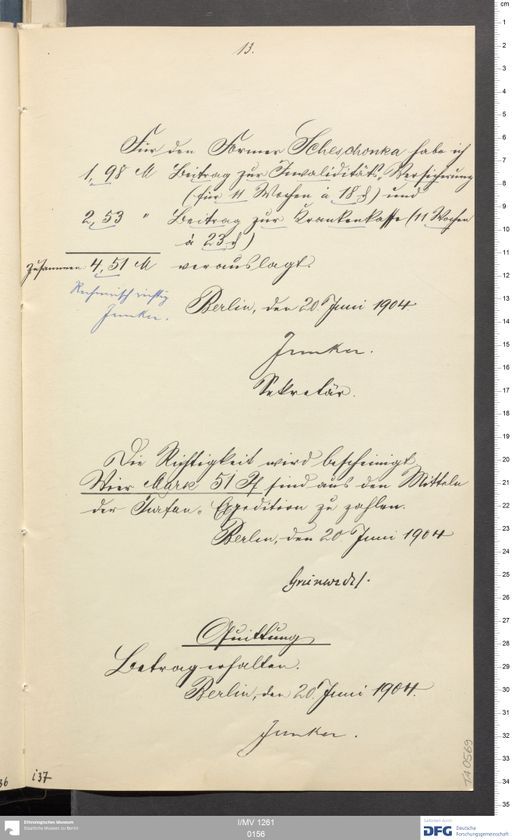 13.
Für den Former Scheschonka habe ich
1,98 M Beitrag zur Invaliditäts-Versicherung
(für 11 Wochen à 18 ₰) und
2,53 " Beitrag zur Krankenkasse (11 Wochen
à 23 ₰)
zusammen 4,51 M verauslagt.
Rechnerisch richtig
Junker.
Berlin, den 20. Juni 1904.
Junker.
Sekretär.
Die Richtigkeit wird bescheinigt
Vier Mark 51 Pf sind aus den Mitteln
der Turfan-Expedition zu zahlen.
Berlin, den 20 Juni 1904
Grünwedel.
Quittung
Betrag erhalten.
Berlin, den 20. Juni 1904.
Junker.
i37
TA 0569
Ethnologisches Museum
Staatliche Museen zu Berlin
I/MV 1261
0156
DFG Deutsche
Forschungsgemeinschaft